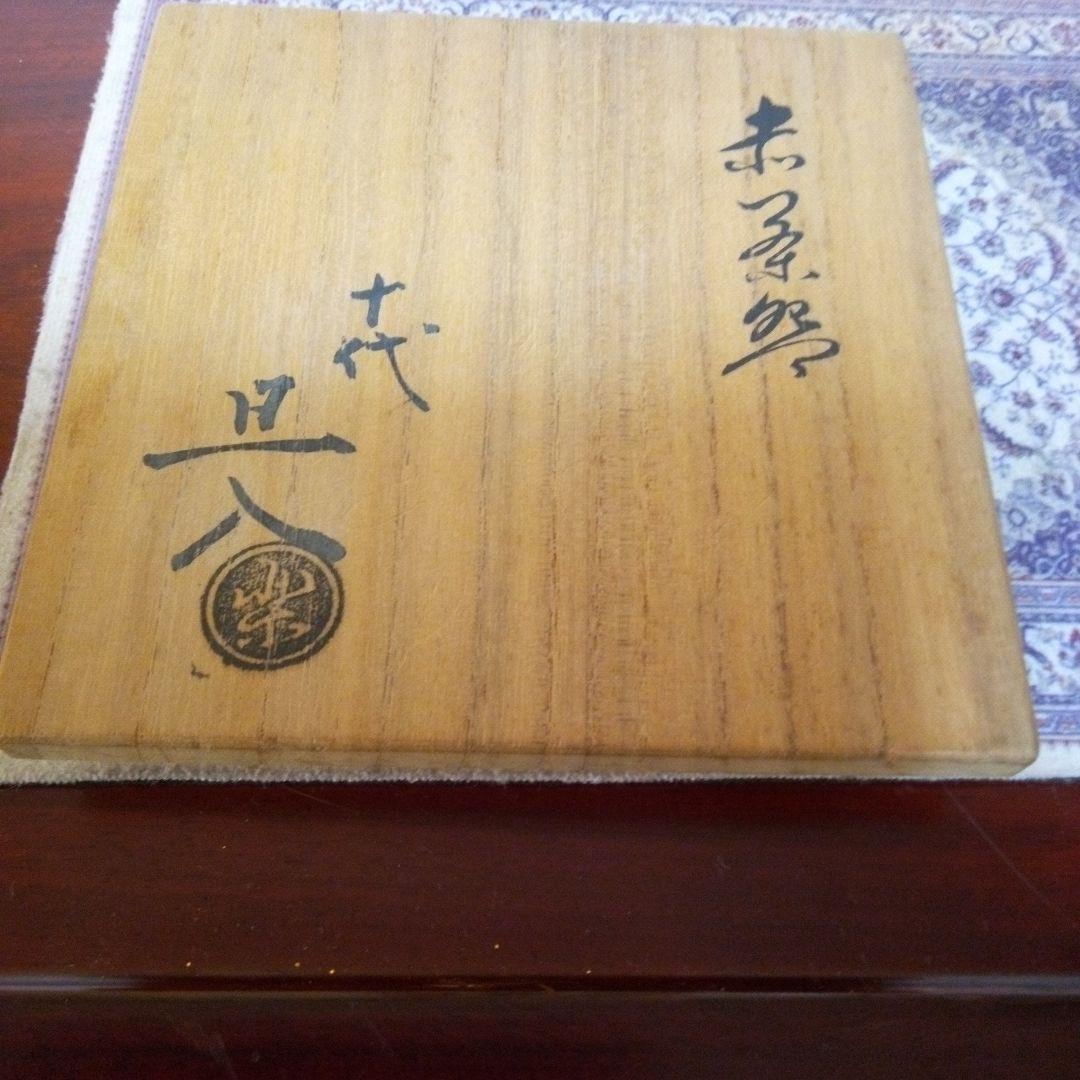 赤茶碗
十代
旦入